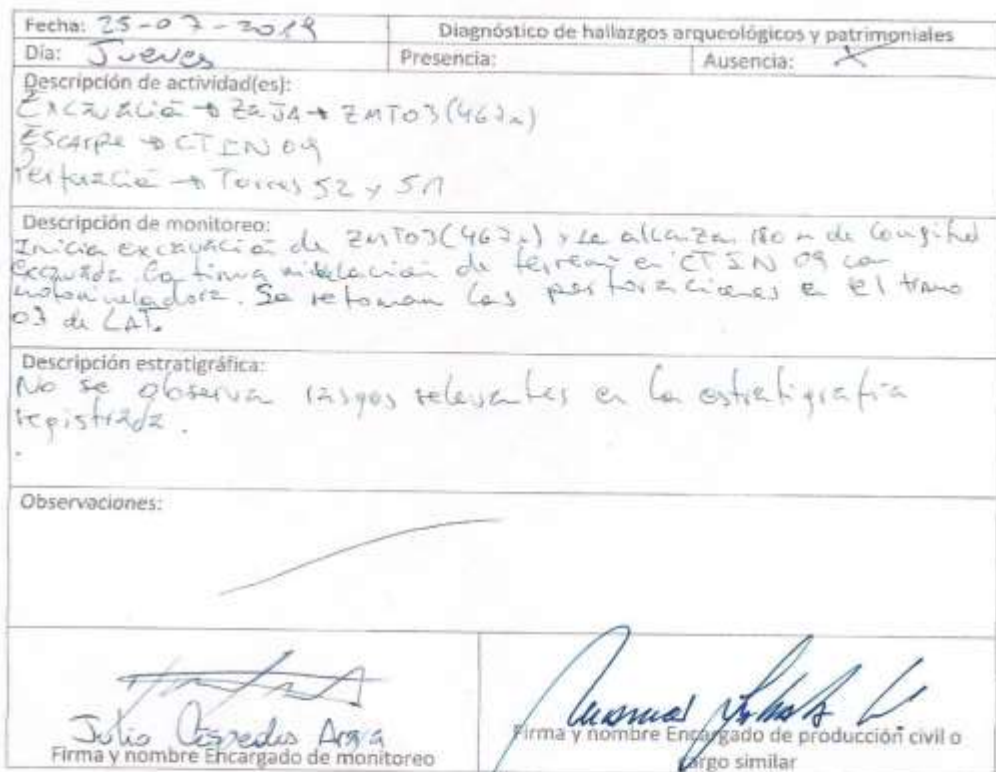 Fecha: 25-07-2019
Diagnóstico de hallazgos arqueológicos y patrimoniales
Día: Jueves
Presencia:
Ausencia: X
Descripción de actividad(es):
Excavación → Zanja → ZMT03 (467m)
Escarpe → CTIN 09
Perforación → Torres 52 y 51
Descripción de monitoreo:
Inicia excavación de ZMT03 (467m) se alcanzan 180 m de longitud
excavada. Continua nivelación de terreno en CTIN 09 con
motoniveladora. Se retoman las perforaciones en el tramo
03 de LAT.
Descripción estratigráfica:
No se observan rasgos relevantes en la estratigrafía
registrada.
Observaciones:
Julio Céspedes Araya
Firma y nombre Encargado de monitoreo
Firma y nombre Encargado de producción civil o
cargo similar